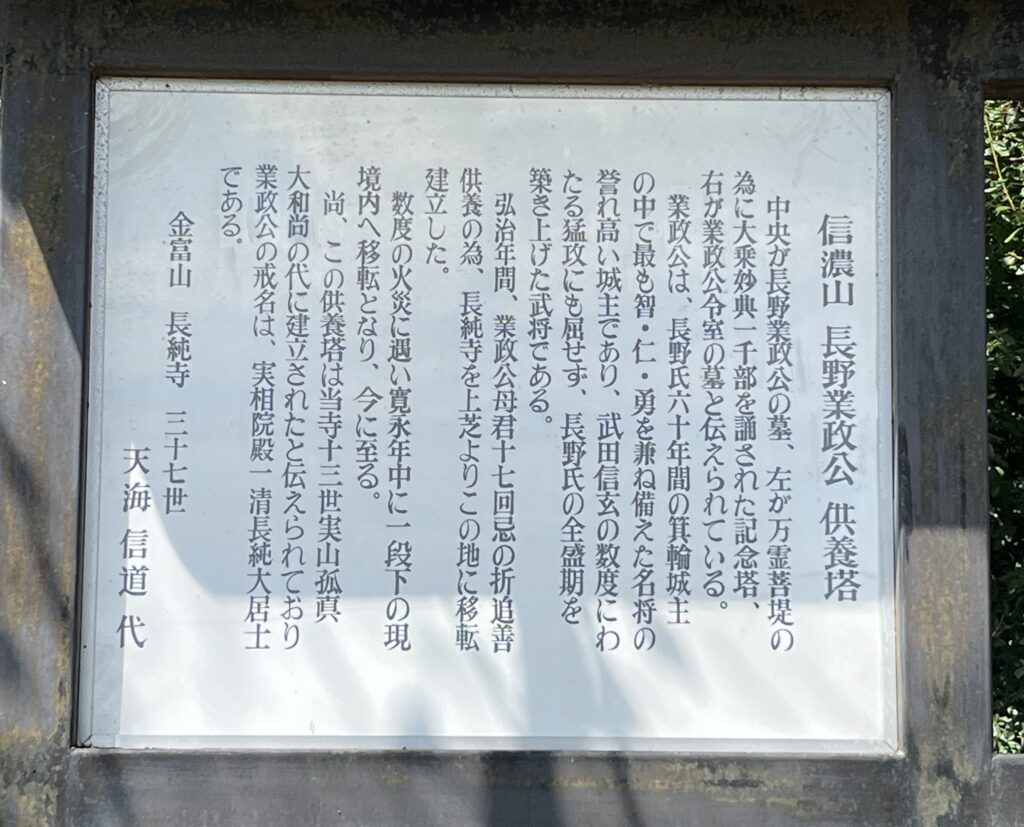 信濃山 長野業政公 供養塔
中央が長野業政公の墓、左が万霊菩堤の
為に大乗妙典一千部を誦された記念塔、
右が業政公令室の墓と伝えられている。
業政公は、長野氏六十年間の箕輪城主
の中で最も智・仁・勇を兼ね備えた名将の
誉れ高い城主であり、武田信玄の数度にわ
たる猛攻にも屈せず、長野氏の全盛期を
築き上げた武将である。
弘治年間、業政公母君十七回忌の折追善
供養の為、長純寺を上芝よりこの地に移転
建立した。
数度の火災に遇い寛永年中に一段下の現
境内へ移転となり、今に至る。
尚、この供養塔は当寺十三世実山孤真
大和尚の代に建立されたと伝えられており
業政公の戒名は、実相院殿一清長純大居士
である。
金富山 長純寺 三十七世
天海信道代